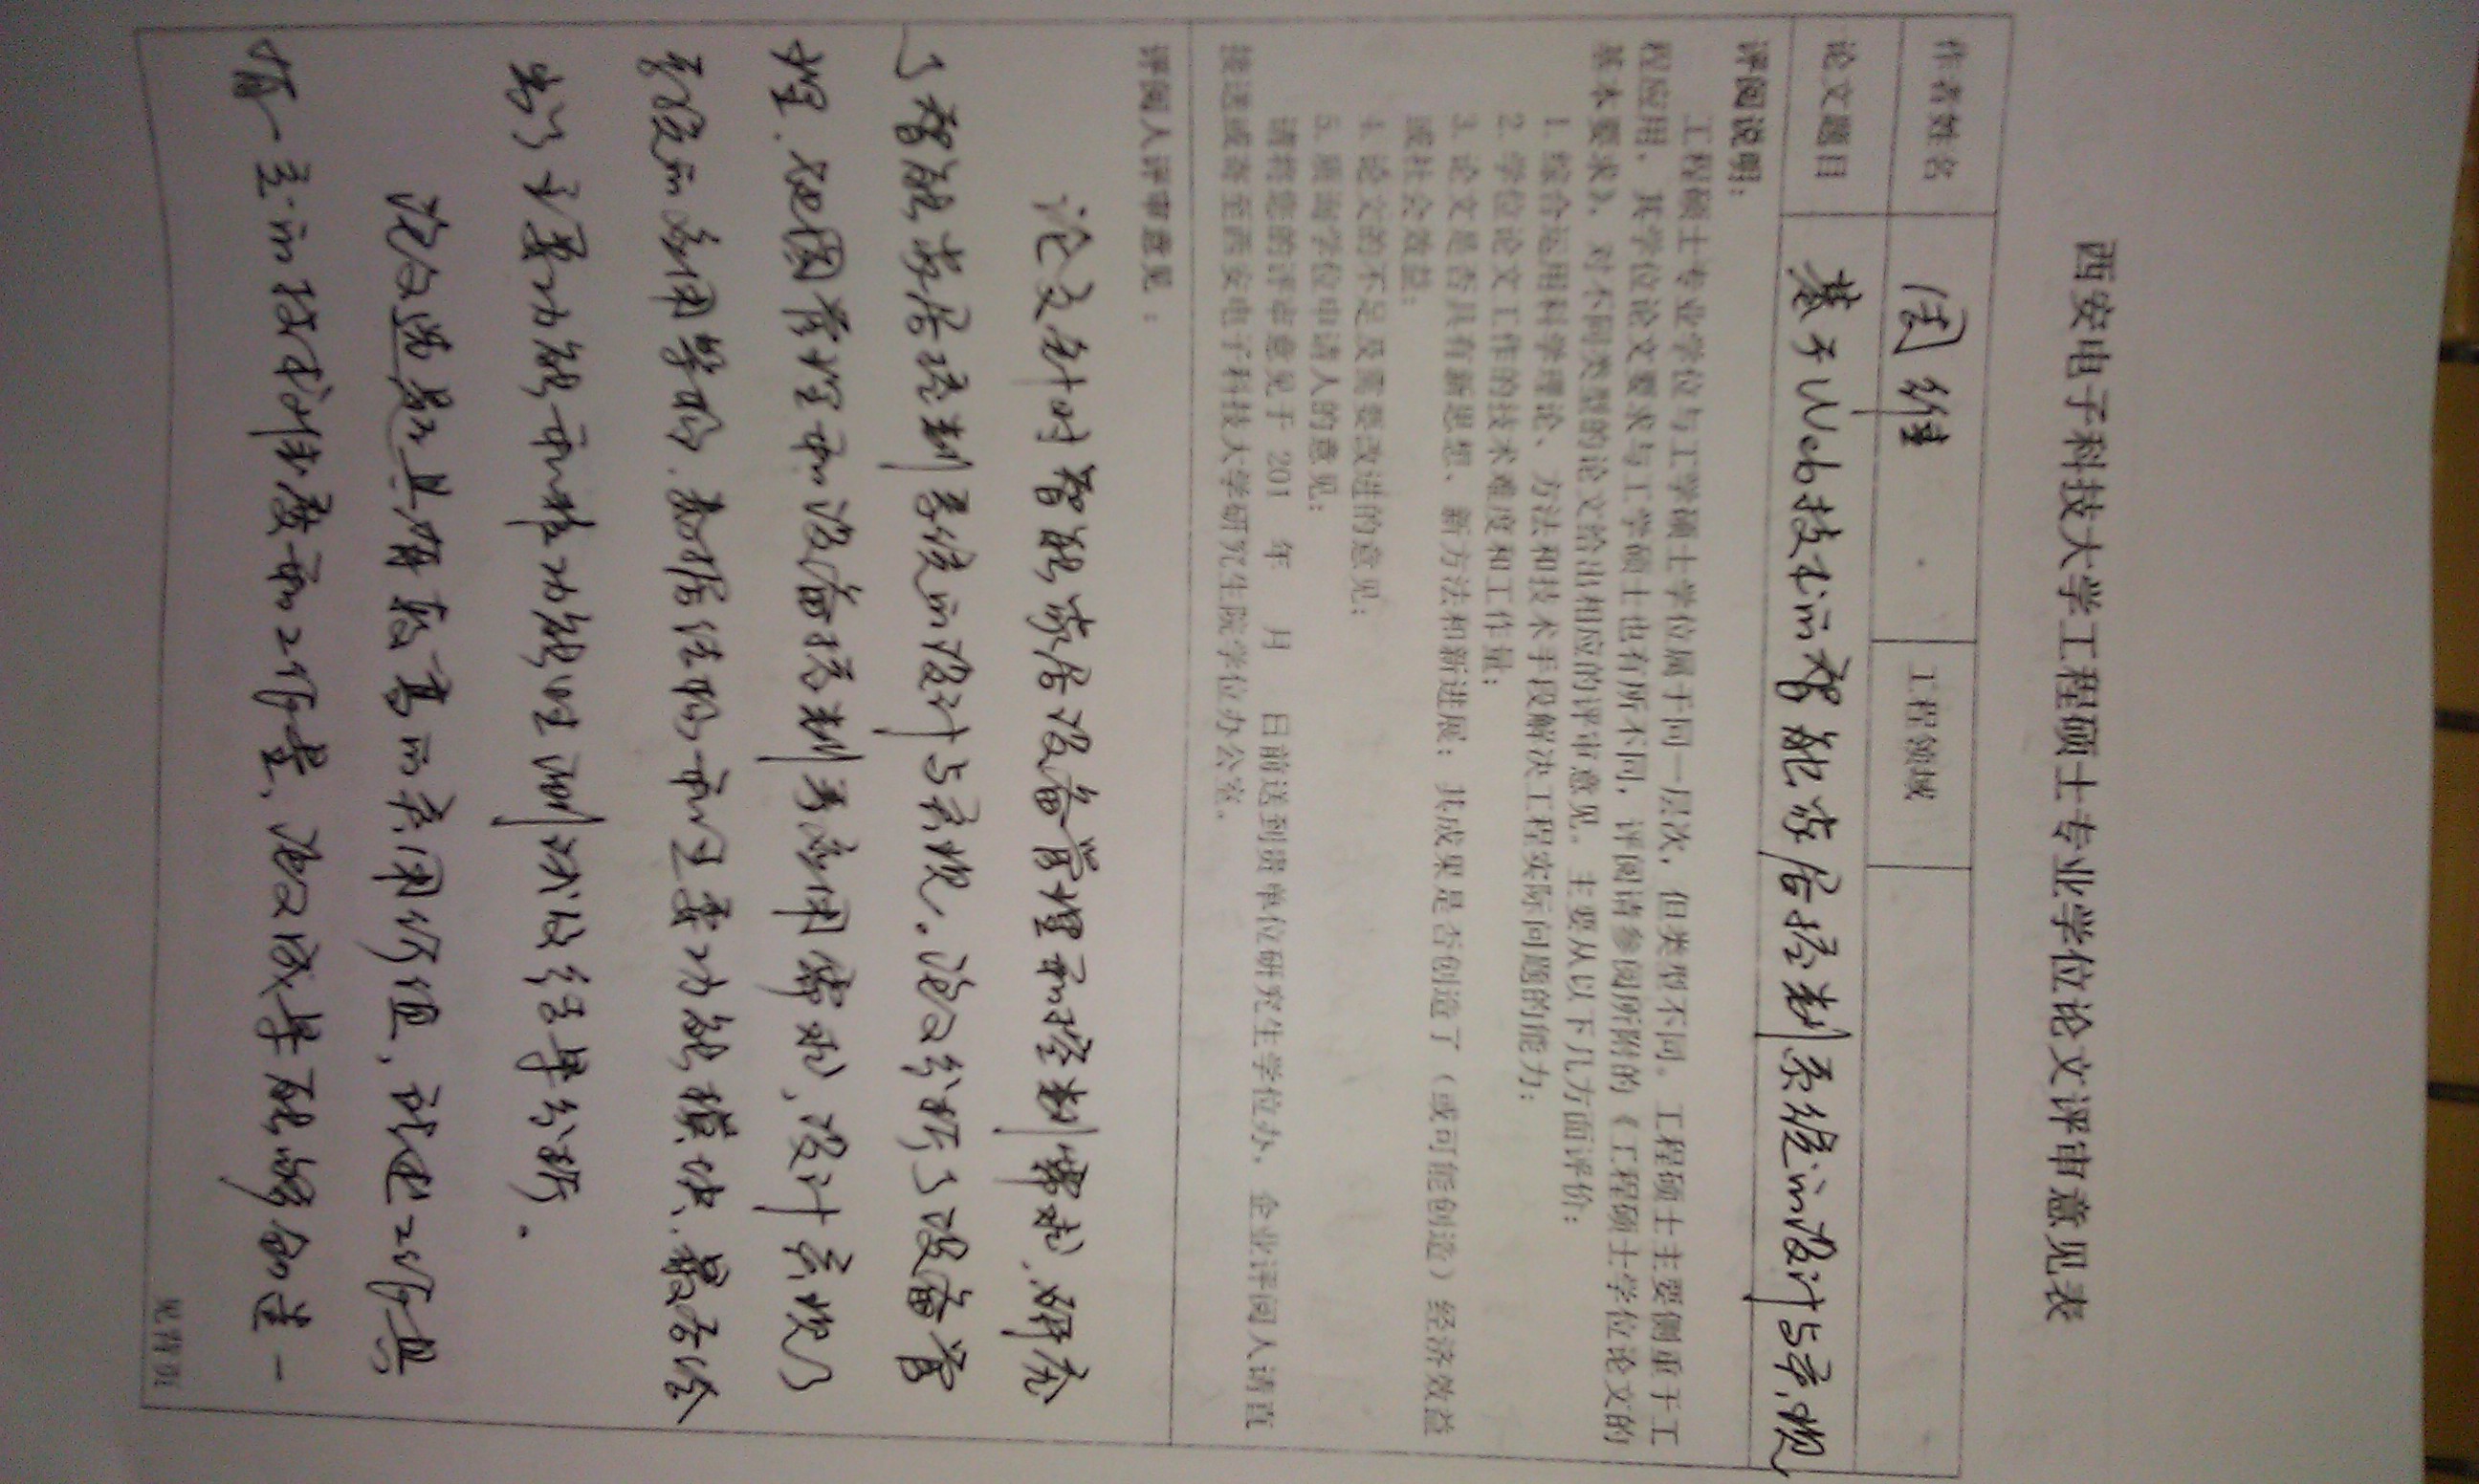 西安电子科技大学工程硕士专业学位论文评审意见表
作者姓名 周维 工程领域
论文题目 基于Web技术的智能家居控制系统的设计与实现
评阅说明：
工程硕士专业学位与工学硕士学位属于同一层次，但类型不同。工程硕士主要侧重于工
程应用，其学位论文要求与工学硕士也有所不同，评阅请参阅所附的《工程硕士学位论文的
基本要求》，对不同类型的论文给出相应的评审意见。主要从以下几方面评价：
1. 综合运用科学理论、方法和技术手段解决工程实际问题的能力；
2. 学位论文工作的技术难度和工作量；
3. 论文是否具有新思想、新方法和新进展；其成果是否创造了（或可能创造）经济效益
或社会效益；
4. 论文的不足及需要改进的意见；
5. 颁询学位申请人的意见；
请将您的评审意见于 201 年 月 日前送到贵单位研究生学位办，企业评阅人请直
接送或寄至西安电子科技大学研究生院学位办公室。
评阅人评审意见：
论文针对智能家居设备管理和控制需求，研究
了智能家居控制系统的设计与实现。论文分析了设备管
理、地图管理和设备控制等应用需求，设计实现了
系统的应用架构、数据结构和主要功能模块，最后给
出了主要功能和性能的测试及结果分析。
论文选题具有较高的实用价值，论述工作具
有一定的技术难度和工作量，论文成果能够创造一
见背页